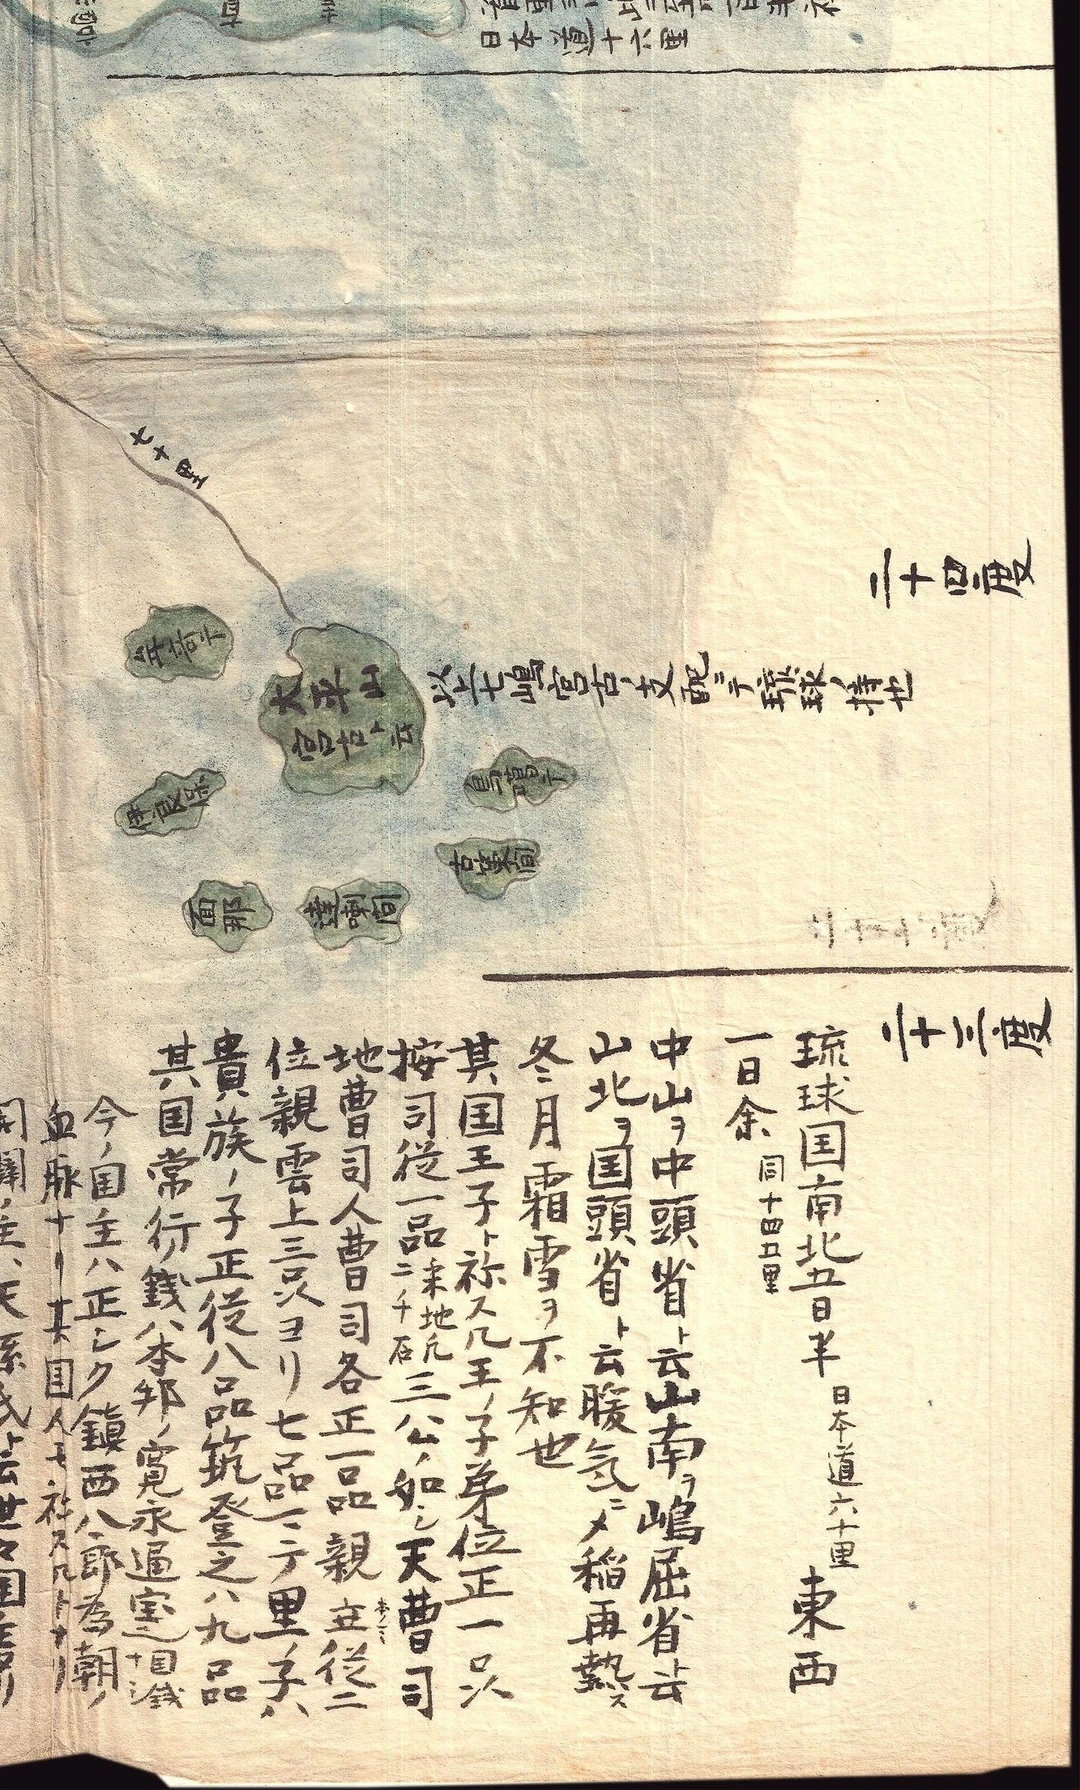 日本道十六里
七十里
二十四度
太平山
宮古ト云
以上七嶋宮古ノ支配ニテ琉球ノ持也
伊良保
面那
達喇間
二十三度
琉球国南北五日半 日本道六十里 東西
一日余 同十四五里
中山ヲ中頭省ト云山南ヲ嶋屈省ト云
山北ヲ国頭省ト云暖気ニメ稲再熟ス
冬月霜雪ヲ不知也
其国王子ト称スルハ王ノ子弟位正一品
按司従一品 三公ノ如シ天曹司
地曹司人曹司各正一品親 従二
位親雲上三品ヨリ七品ニテ里ノ子ハ
貴族ノ子正従八品筑登之ハ九品
其国常行銭ハ本邦ノ寛永通宝
今ノ国主ハ正シク鎮西八郎為朝ノ
血脉ナリ其国人モ称スル